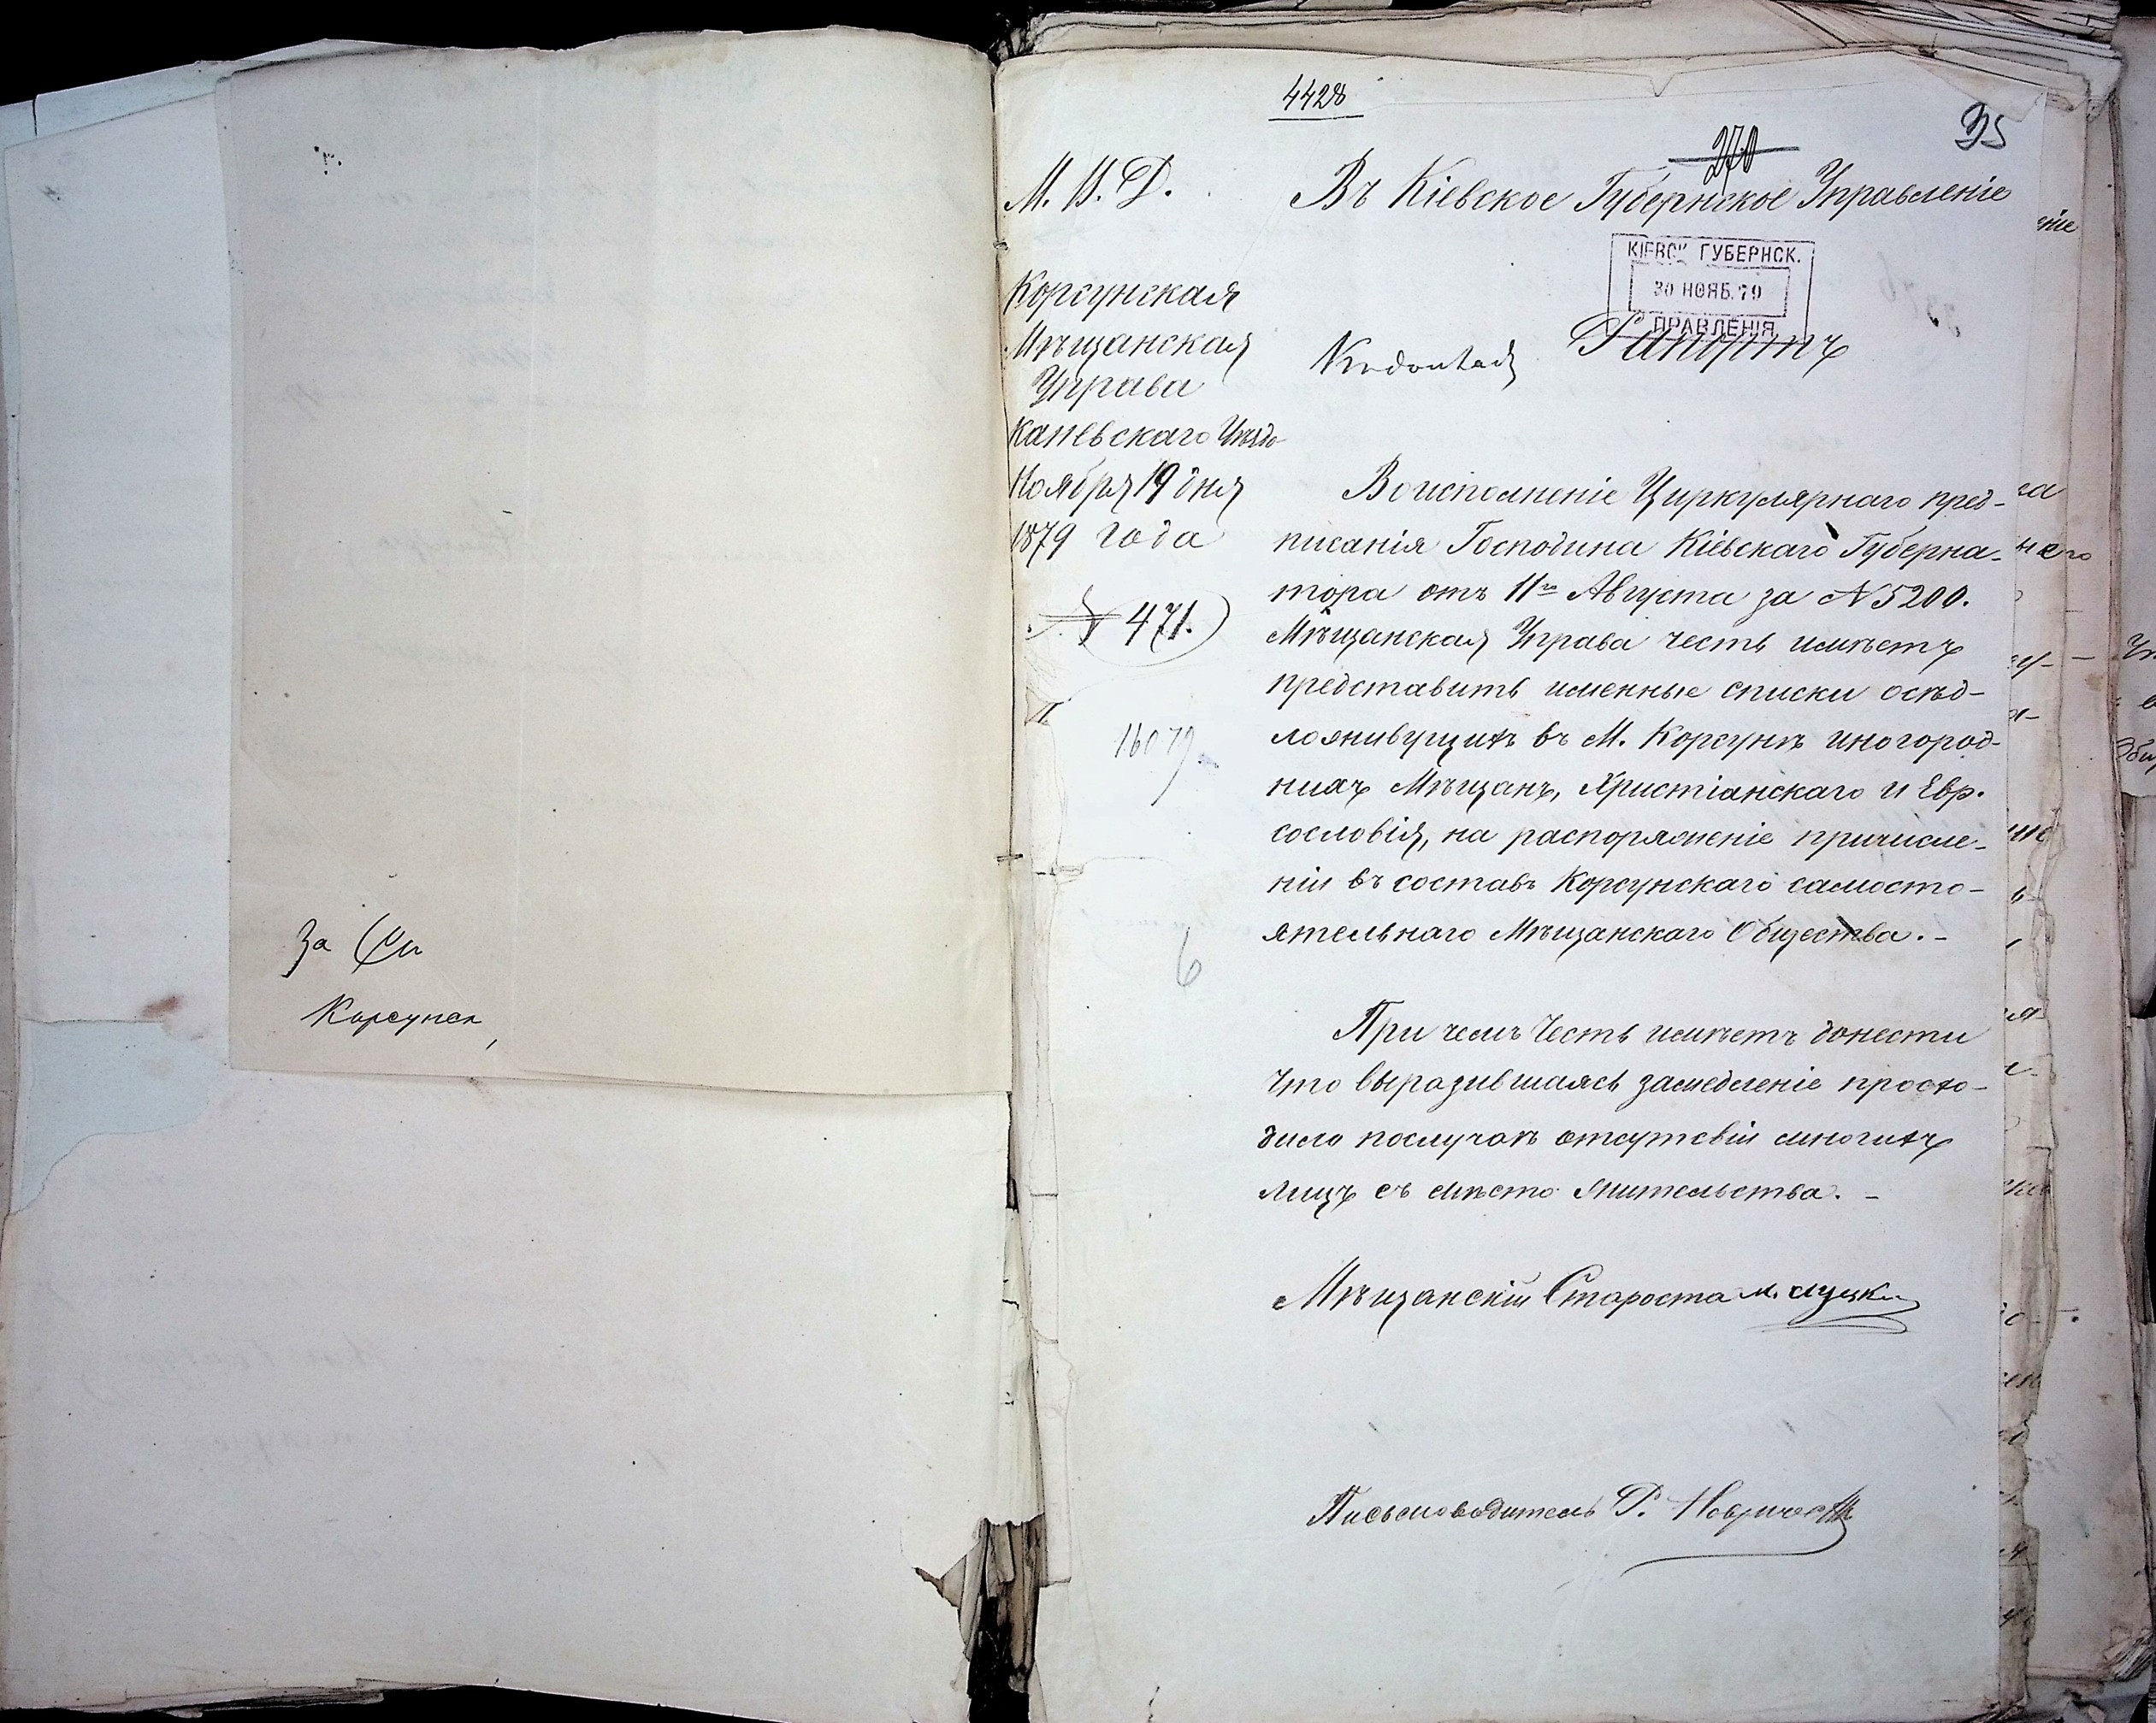 За
Корсунск
4428
35
270
М. В. Д.
Корсунская
Мѣщанская
Управа
Каневскаго Уѣзда
Ноября 19 дня
1879 года
№ 471.
16079
6
Въ Кіевское Губернское Управленіе
КІЕВСК ГУБЕРНСК.
30 НОЯБ. 79
ПРАВЛЕНІЯ
Рапортъ
Во исполненіе Циркулярнаго пред-
писанія Господина Кіевскаго Губерна-
тора отъ 11го Августа за № 5200.
Мѣщанская Управа честь имѣетъ
представить именные списки осѣд-
ложивущихъ въ М. Корсунѣ иногород-
нихъ Мѣщанъ, Христіанскаго и Евр.
сословія, на распоряженіе причисле-
ніи въ составъ Корсунскаго самосто-
ятельнаго Мѣщанскаго Общества. -
При чемъ Честь имѣетъ донести
что выразившаясь замедленіе просхо-
дило послучаѣ отсутсвіи многихъ
Лицъ съ мѣсто жительства. -
Мѣщанскій Староста М.
Письмоводитель